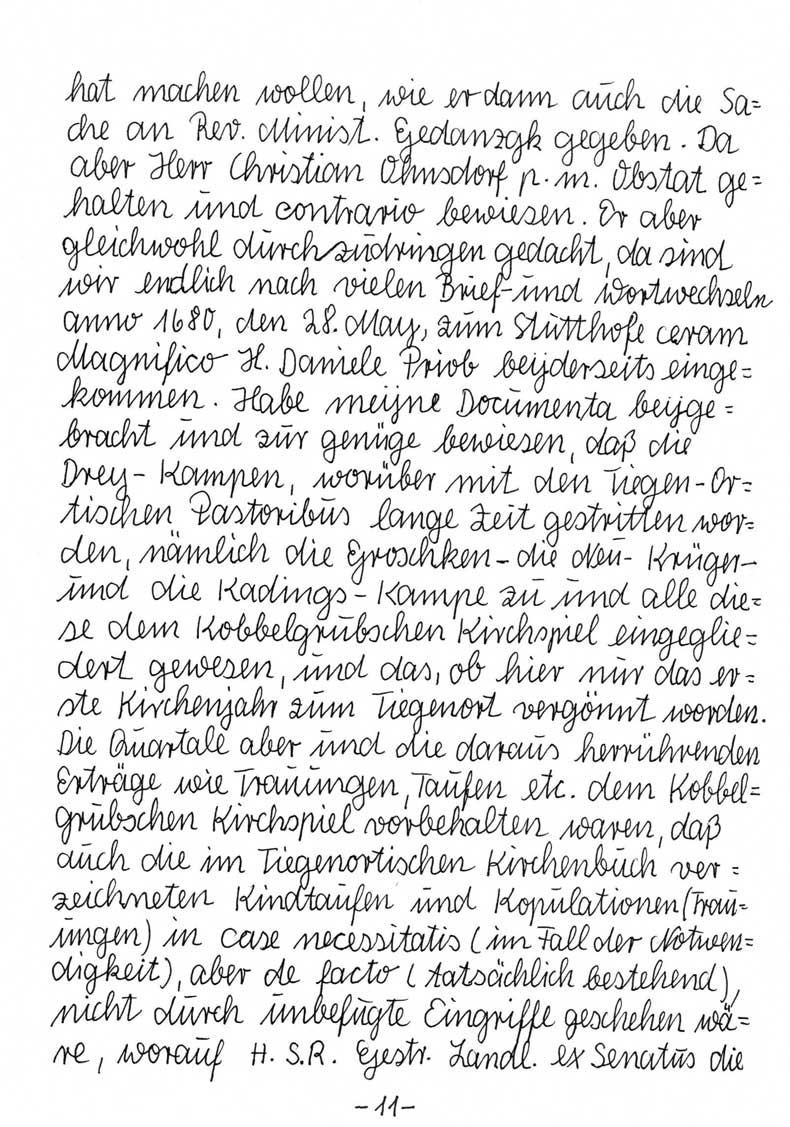 hat machen wollen, wie er dann auch die Sa=
che an Rev. Minist. Gedanzgk gegeben. Da
aber Herr Christian Ohmsdorf p. m. Obstat ge=
halten und contrario bewiesen. Er aber
gleichwohl durchzudringen gedacht, da sind
wir endlich nach vielen Brief- und Wortwechseln
anno 1680, den 28. May, zum Stutthofe ceram
Magnifico H. Daniele Priob beyderseits einge=
kommen. Habe meijne Documenta beijge=
bracht und zur genüge bewiesen, daß die
Drey-Kampen, worüber mit den Tiegen-Or=
tischen Pastoribus lange Zeit gestritten wor=
den, nämlich die Groschken- die Neu- Krüger-
und die Kadings-Kampe zu und alle die=
se dem Kobbelgrubschen Kirchspiel eingeglie=
dert gewesen, und das, ob hier nur das er=
ste Kirchenjahr zum Tiegenort vergönnt worden.
Die Quartale aber und die daraus herrührenden
Erträge wie Trauungen, Taufen etc. dem Kobbel=
grubschen Kirchspiel vorbehalten waren, daß
auch die im Tiegenortischen Kirchenbuch ver=
zeichneten Kindtaufen und Kopulationen (Trau=
ungen) in case necessitatis (im Fall der Notwen=
digkeit), aber de facto (tatsächlich bestehend),
nicht durch unbefugte Eingriffe geschehen wä=
re, worauf H. S. R. Gestr. Landl. ex Senatus die
-11-